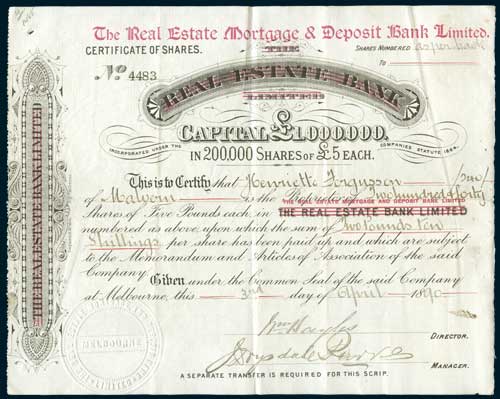 The Real Estate Mortgage & Deposit Bank Limited.
CERTIFICATE OF SHARES.
SHARES NUMBERED as per back
TO
No 4483
THE
REAL ESTATE BANK
LIMITED
CAPITAL £1,000,000,
INCORPORATED UNDER THE COMPANIES STATUTE 1864.
IN 200,000 SHARES OF £5 EACH.
THE REAL ESTATE BANK LIMITED
This is to Certify that Henriette Ferguson
of Malvern is the Two hundred & forty
THE REAL ESTATE MORTGAGE AND DEPOSIT BANK LIMITED
Shares of Five Pounds each in THE REAL ESTATE BANK LIMITED
numbered as above, upon which the sum of Two Pounds Ten
Shillings per share has been paid up and which are subject
to the Memorandum and Articles of Association of the said
Company
Given under the Common Seal of the said Company
at Melbourne, this 3 day of April 1890
DIRECTOR.
MANAGER.
A SEPARATE TRANSFER IS REQUIRED FOR THIS SCRIP.